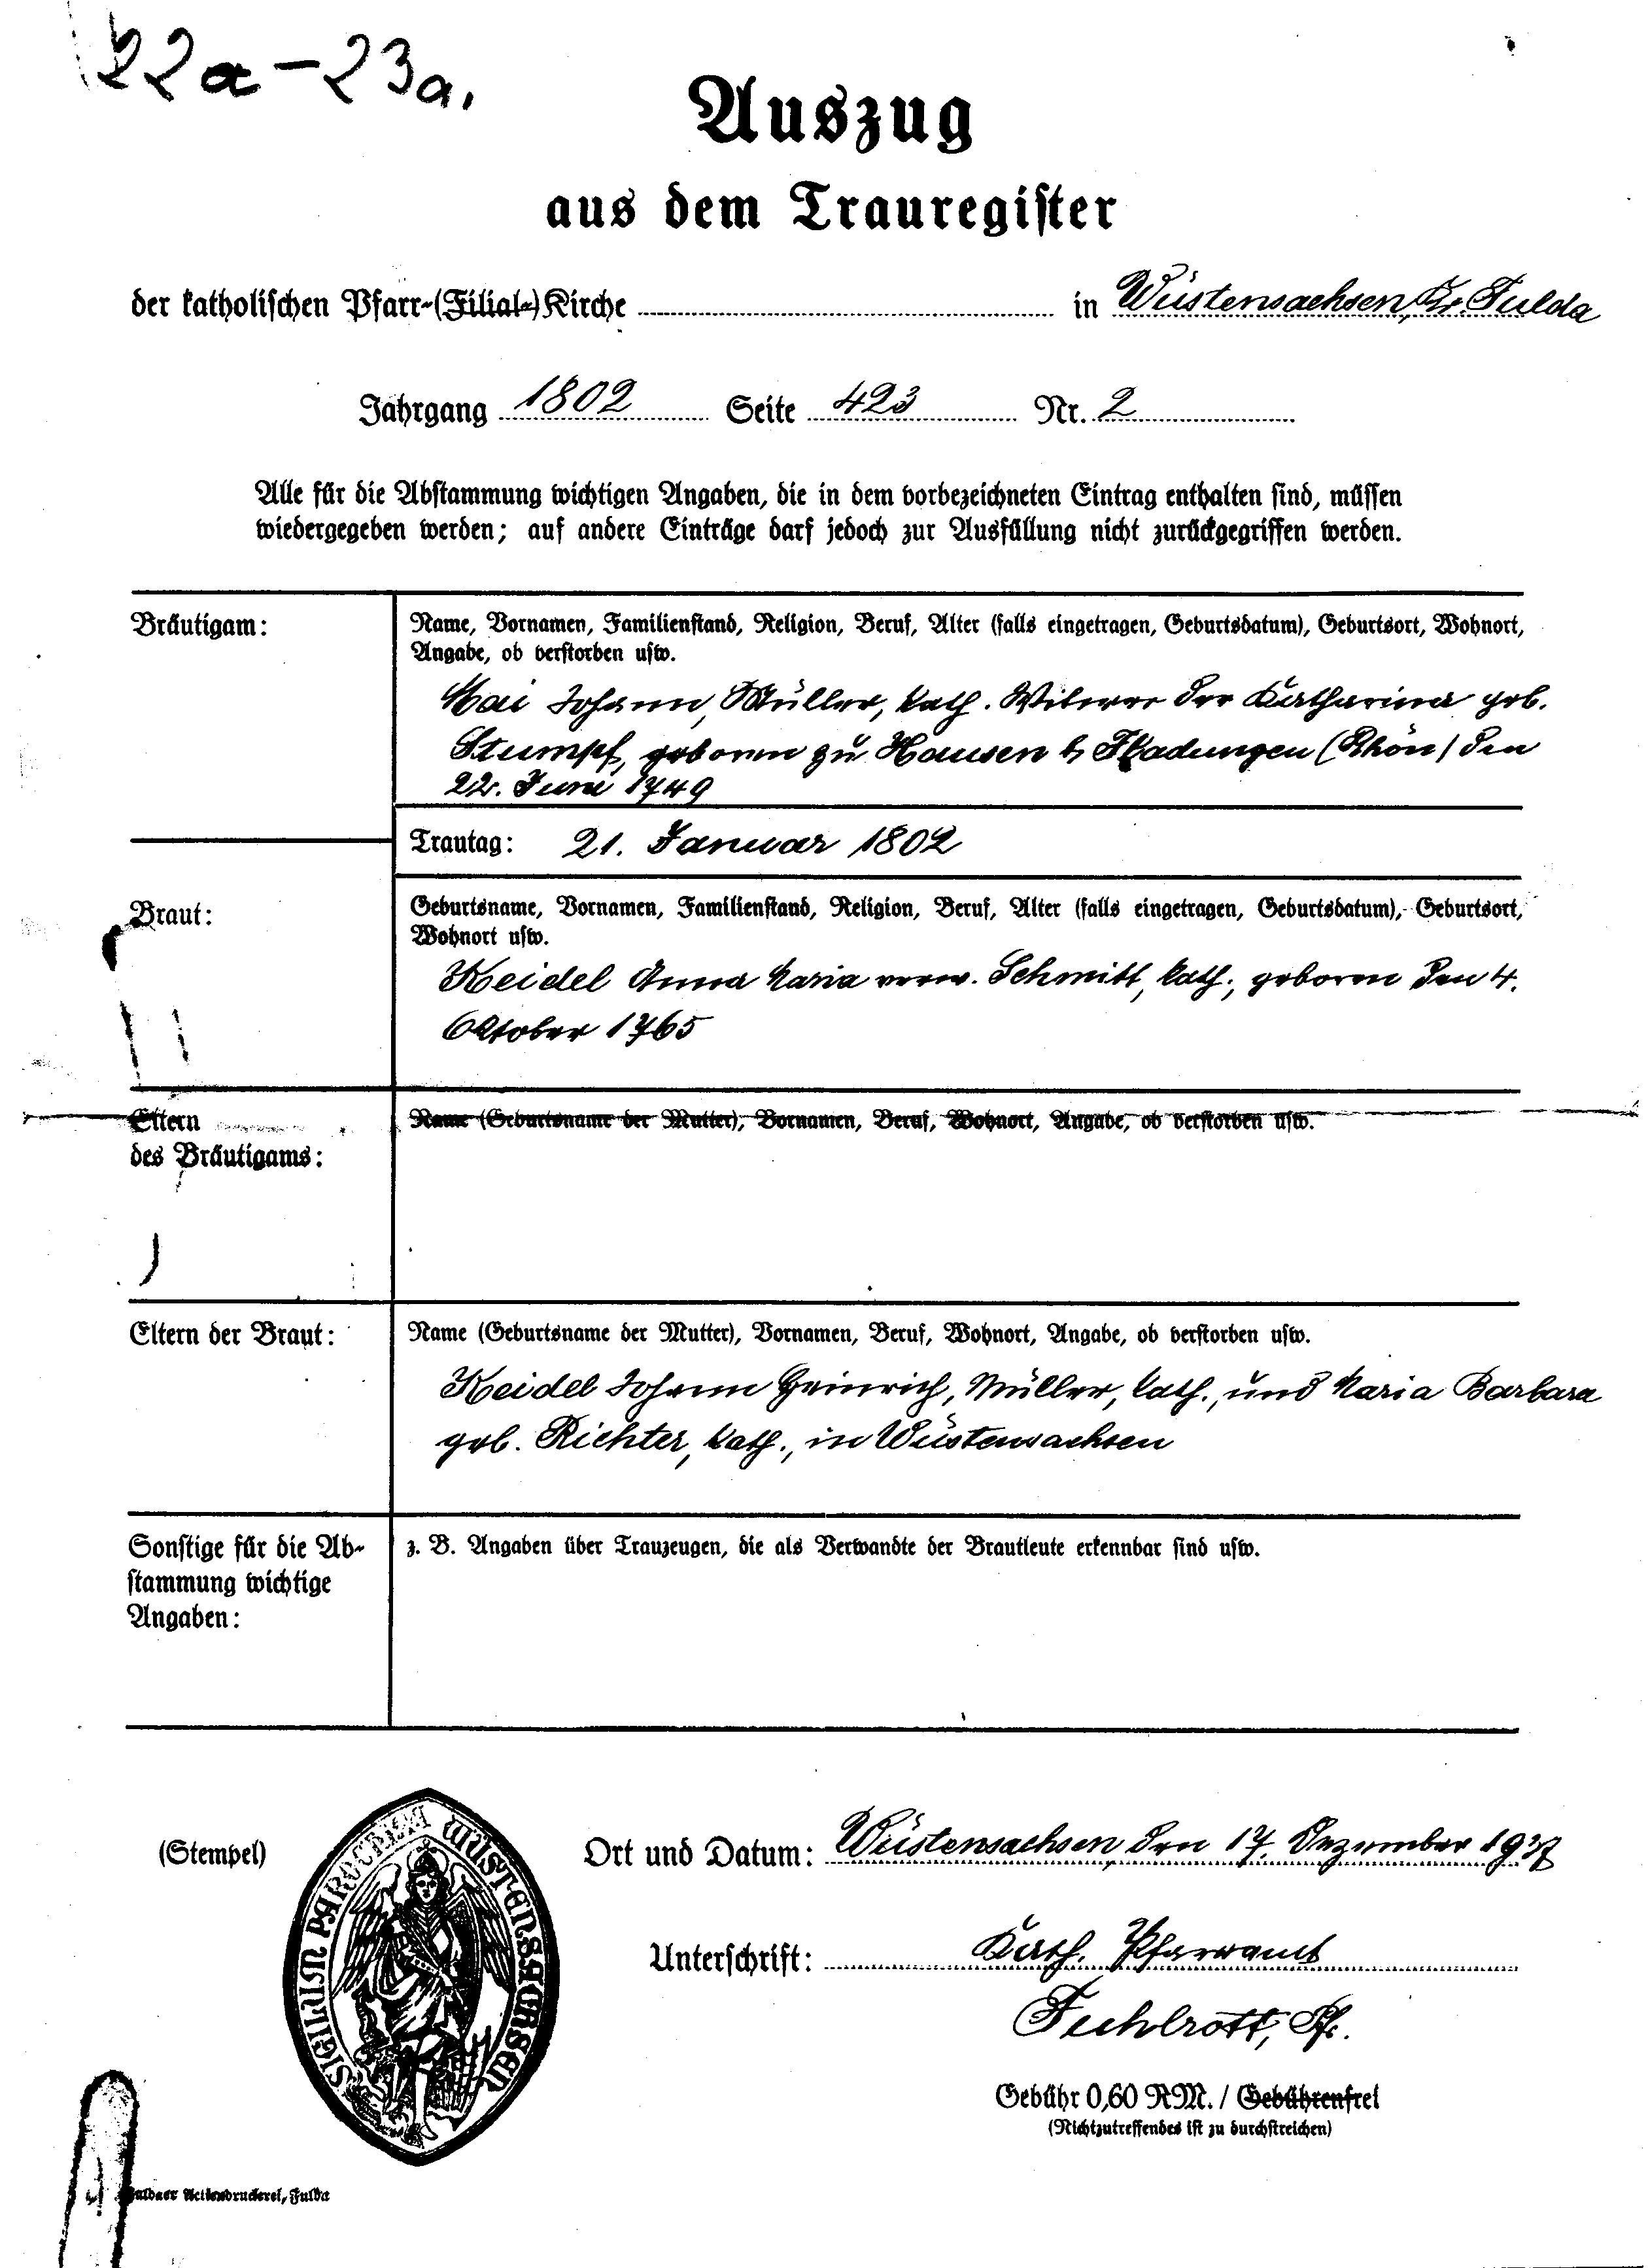 22a-23a.
Auszug
aus dem Trauregister
der katholischen Pfarr-(Filial-)Kirche in Wüstensachsen, Kr. Fulda
Jahrgang 1802 Seite 423 Nr. 2
Alle für die Abstammung wichtigen Angaben, die in dem vorbezeichneten Eintrag enthalten sind, müssen
wiedergegeben werden; auf andere Einträge darf jedoch zur Ausfüllung nicht zurückgegriffen werden.
Bräutigam: Name, Vornamen, Familienstand, Religion, Beruf, Alter (falls eingetragen, Geburtsdatum), Geburtsort, Wohnort,
Angabe, ob verstorben usw.
Mai Johann, Müller, kath. Witwer der Katharina geb.
Stumpf, geboren zu Hausen b. Fladungen (Rhön) den
22. Juni 1749
Trautag: 21. Januar 1802
Braut: Geburtsname, Vornamen, Familienstand, Religion, Beruf, Alter (falls eingetragen, Geburtsdatum), Geburtsort,
Wohnort usw.
Keidel Anna Maria verw. Schmitt, kath., geboren den 4.
Oktober 1765
Eltern Name (Geburtsname der Mutter), Vornamen, Beruf, Wohnort, Angabe, ob verstorben usw.
des Bräutigams:
Eltern der Braut: Name (Geburtsname der Mutter), Vornamen, Beruf, Wohnort, Angabe, ob verstorben usw.
Keidel Johann Heinrich, Müller, kath., und Maria Barbara
geb. Richter, kath., in Wüstensachsen
Sonstige für die Ab- z. B. Angaben über Trauzeugen, die als Verwandte der Brautleute erkennbar sind usw.
stammung wichtige
Angaben:
(Stempel) Ort und Datum: Wüstensachsen, den 17. Dezember 1937
SIGILUM PAROCHIAE WUSTENSACHSEN
Unterschrift: Kath. Pfarramt
Fuhlrott, Pfr.
Gebühr 0,60 RM. / Gebührenfrei
(Nichtzutreffendes ist zu durchstreichen)
Fuldaer Actiendruckerei, Fulda